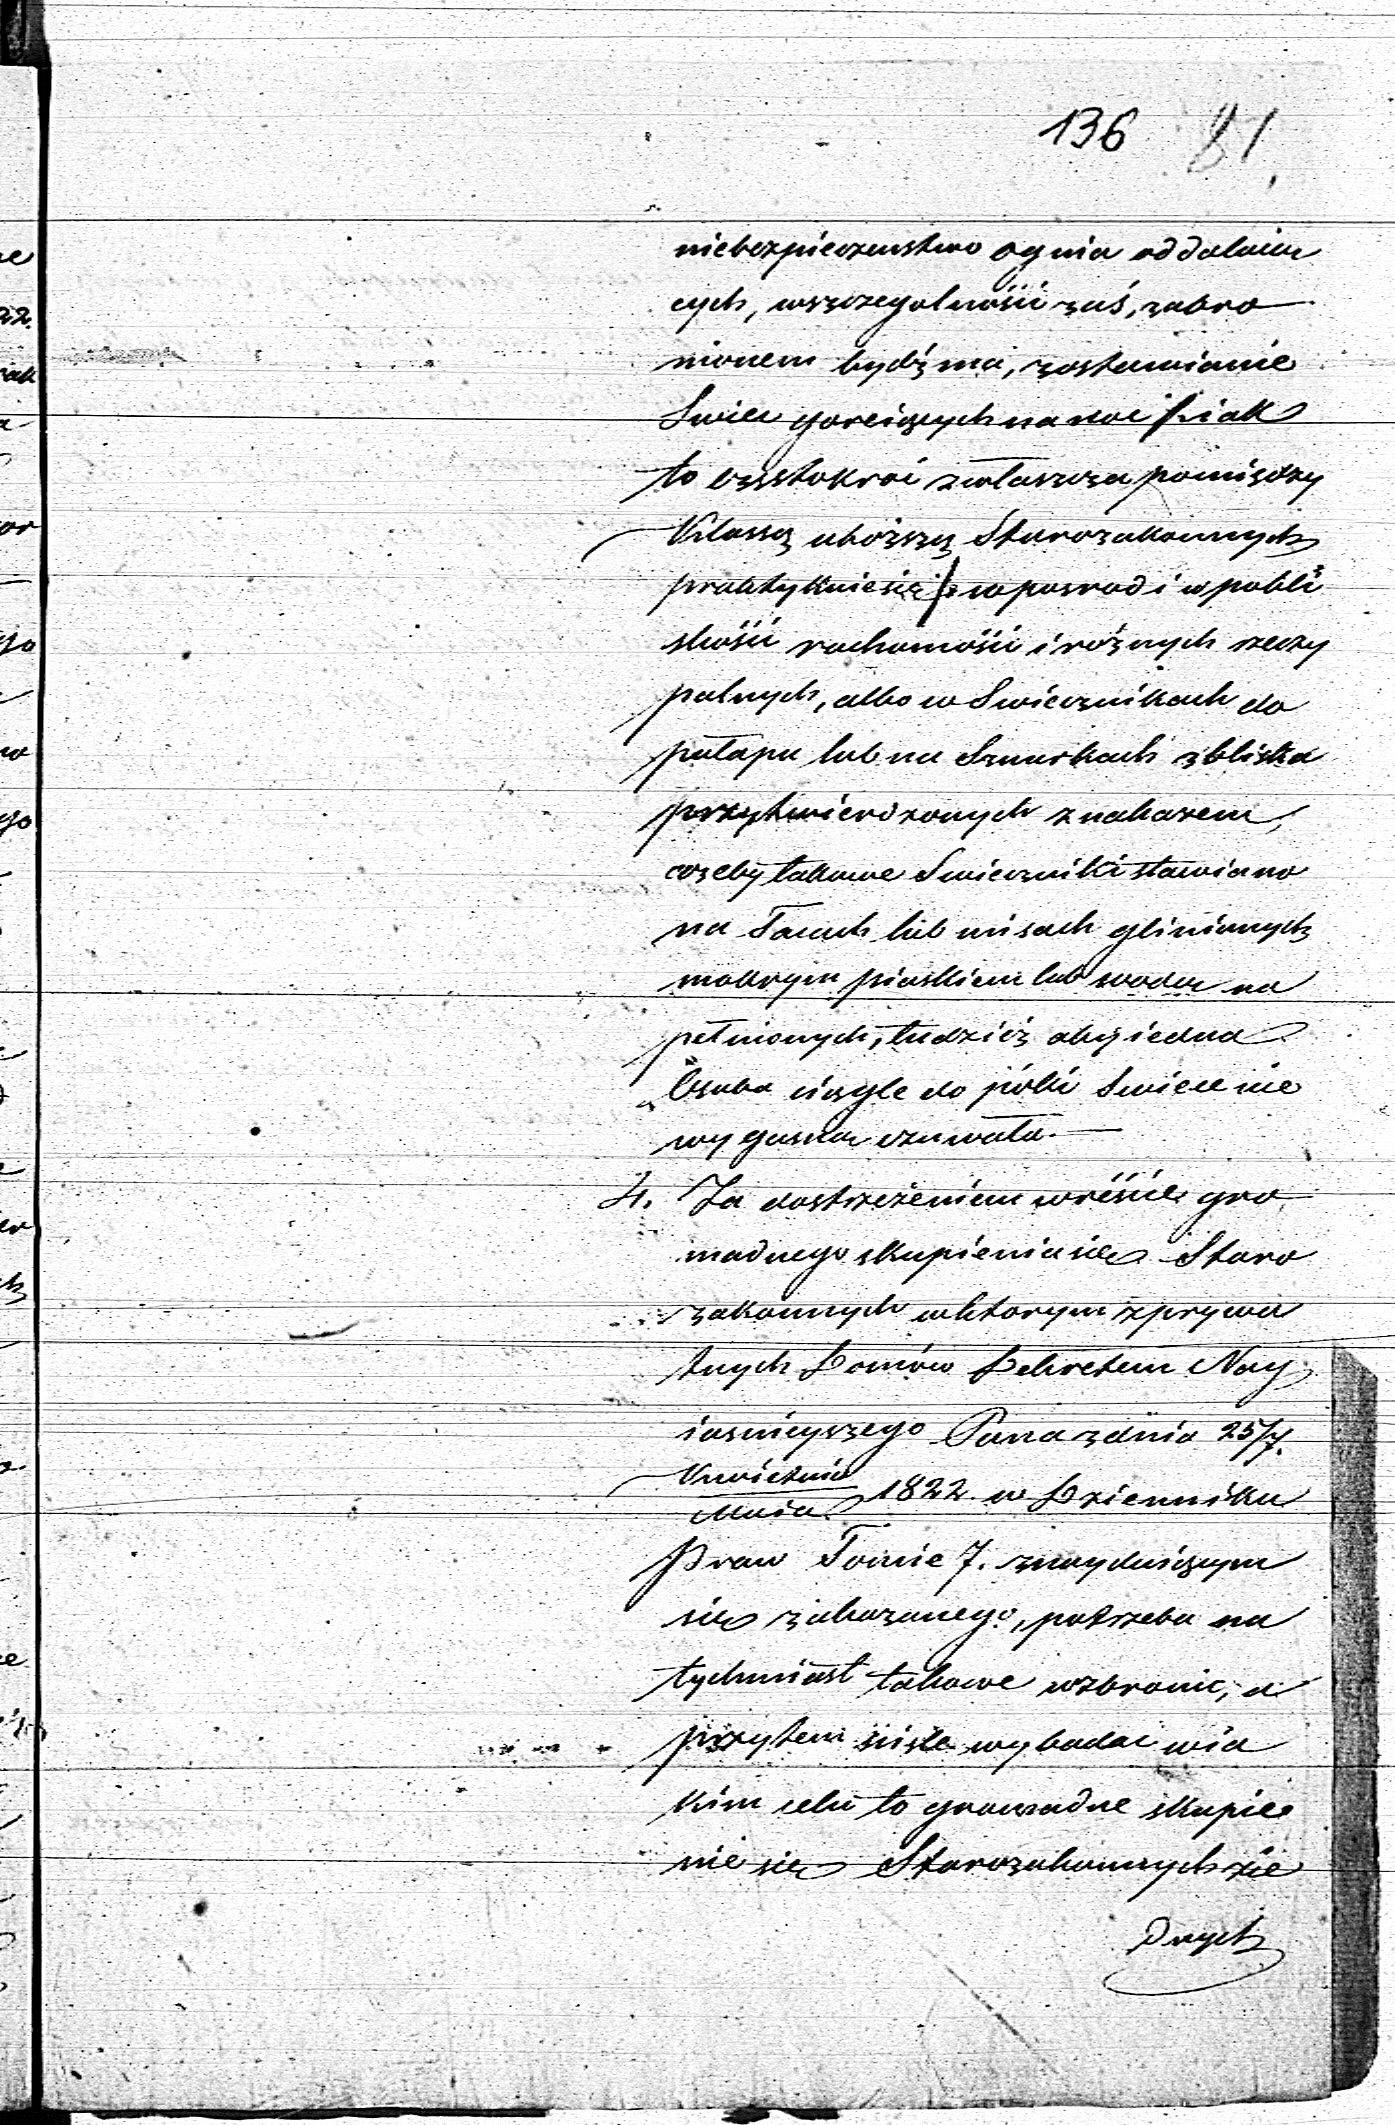 136 81
niebezpieczenstwo ognia oddalaią
cych, wszczegolności zaś, zabro
nionem bydź ma, zostawianie
Swiec goreiących na noc / iak
to częstokroć zwłaszcza pomiędzy
Klassą uboższą Starozakonnych
praktykuie się / w posrod i w pobli
skości ruchomości i różnych rzeczy
palnych, albo w Swiecznikach do
pułapu lub na Sznurkach zbliska
przytwierdzonych z nakazem,
ażeby takowe Swieczniki stawiano
na Tacach lub misach glinianych
mokrym piaskiem lub wodą na
pełnionych, tudzież aby iedna
Osoba ciągle do póki Swiece nie
wygasną czuwała.
4. Za dostrzeżeniem wreście gro
madnego skupienia się Staro
zakonnych w ktorym z prywa
tnych Domów Dekretem Nay
iasnieyszego Pana z dnia 25/7.
Kwietnia
Maia 1822 w Dzienniku
Praw Tomie 7. znayduiącym
się zakazanego, potrzeba na
tychmiast takowe wzbronic, a
przytem ściśle wybadac w ia
kim celu to gromadne skupie
nie się Starozakonnych zie